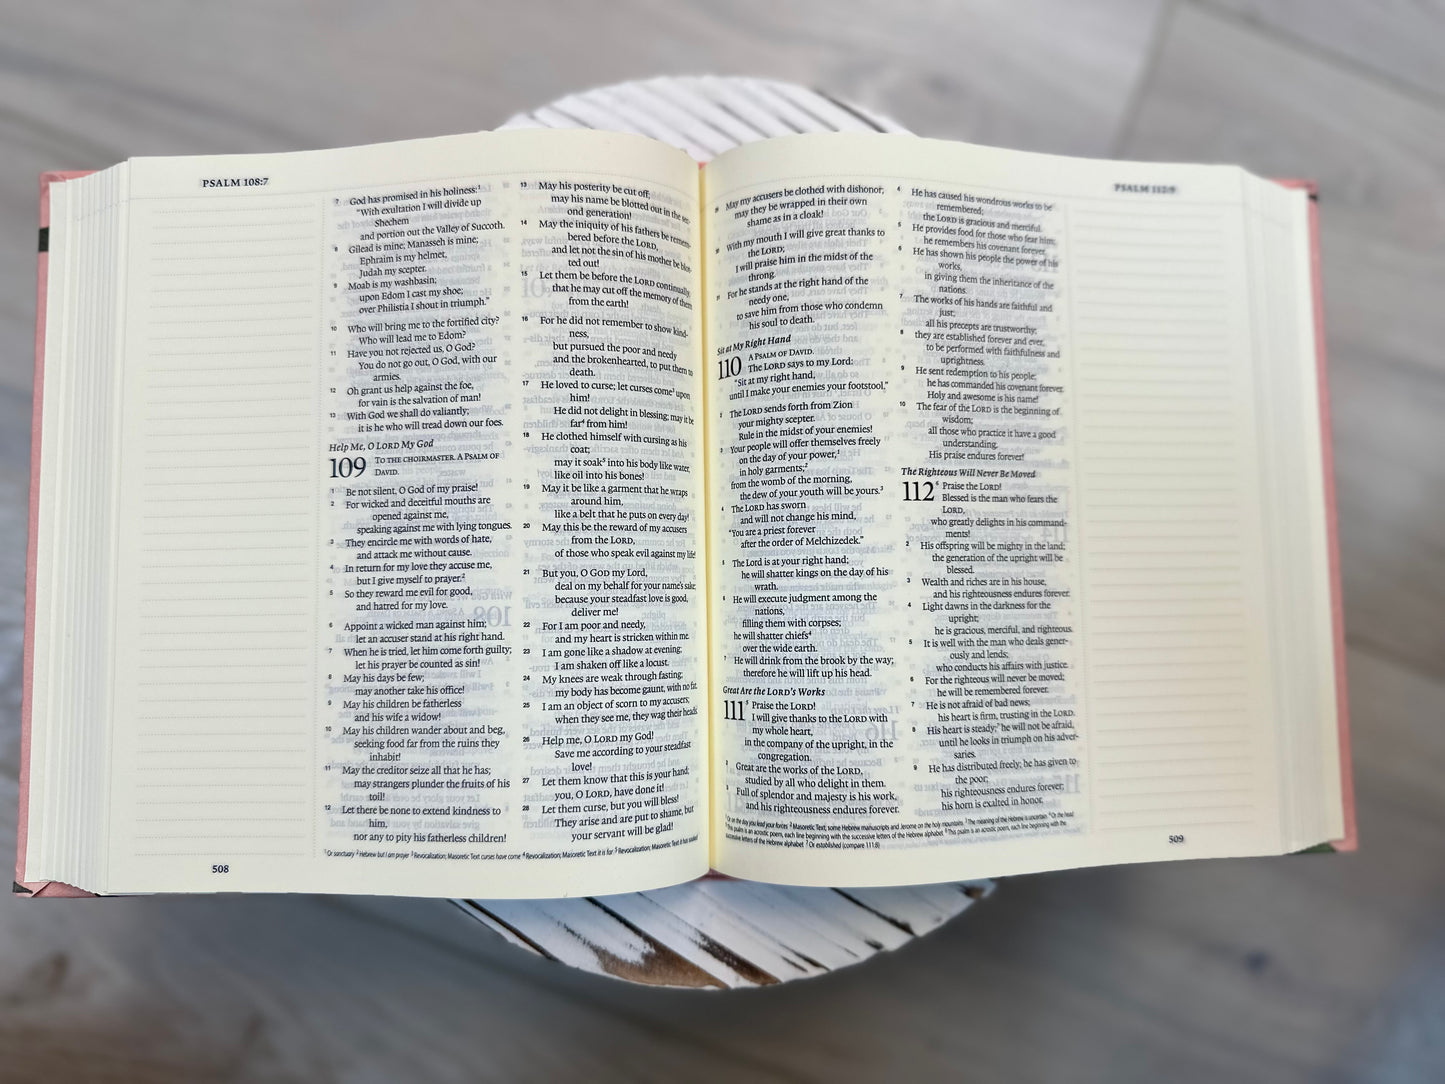 PSALM 108:7
7 God has promised in his holiness:1
"With exultation I will divide up
Shechem
and portion out the Valley of Succoth.
8 Gilead is mine; Manasseh is mine;
Ephraim is my helmet,
Judah my scepter.
9 Moab is my washbasin;
upon Edom I cast my shoe;
over Philistia I shout in triumph."
10 Who will bring me to the fortified city?
Who will lead me to Edom?
11 Have you not rejected us, O God?
You do not go out, O God, with our
armies.
12 Oh grant us help against the foe,
for vain is the salvation of man!
13 With God we shall do valiantly;
it is he who will tread down our foes.
Help Me, O LORD My God
109 TO THE CHOIRMASTER. A PSALM OF
DAVID.
1 Be not silent, O God of my praise!
2 For wicked and deceitful mouths are
opened against me,
speaking against me with lying tongues.
3 They encircle me with words of hate,
and attack me without cause.
4 In return for my love they accuse me,
but I give myself to prayer.2
5 So they reward me evil for good,
and hatred for my love.
6 Appoint a wicked man against him;
let an accuser stand at his right hand.
7 When he is tried, let him come forth guilty;
let his prayer be counted as sin!
8 May his days be few;
may another take his office!
9 May his children be fatherless
and his wife a widow!
10 May his children wander about and beg,
seeking food far from the ruins they
inhabit!
11 May the creditor seize all that he has;
may strangers plunder the fruits of his
toil!
12 Let there be none to extend kindness to
him,
nor any to pity his fatherless children!
13 May his posterity be cut off;
may his name be blotted out in the sec-
ond generation!
14 May the iniquity of his fathers be remem-
bered before the LORD,
and let not the sin of his mother be blot-
ted out!
15 Let them be before the LORD continually,
that he may cut off the memory of them
from the earth!
16 For he did not remember to show kind-
ness,
but pursued the poor and needy
and the brokenhearted, to put them to
death.
17 He loved to curse; let curses come3 upon
him!
He did not delight in blessing; may it be
far4 from him!
18 He clothed himself with cursing as his
coat;
may it soak5 into his body like water,
like oil into his bones!
19 May it be like a garment that he wraps
around him,
like a belt that he puts on every day!
20 May this be the reward of my accusers
from the LORD,
of those who speak evil against my life!
21 But you, O GOD my Lord,
deal on my behalf for your name's sake;
because your steadfast love is good,
deliver me!
22 For I am poor and needy,
and my heart is stricken within me.
23 I am gone like a shadow at evening;
I am shaken off like a locust.
24 My knees are weak through fasting;
my body has become gaunt, with no fat.
25 I am an object of scorn to my accusers;
when they see me, they wag their heads.
26 Help me, O LORD my God!
Save me according to your steadfast
love!
27 Let them know that this is your hand;
you, O LORD, have done it!
28 Let them curse, but you will bless!
They arise and are put to shame, but
your servant will be glad!
1 Or sanctuary 2 Hebrew but I am prayer 3 Revocalization; Masoretic Text curses have come 4 Revocalization; Masoretic Text it is far 5 Revocalization; Masoretic Text it has soaked
508
PSALM 112:9
29 May my accusers be clothed with dishonor;
may they be wrapped in their own
shame as in a cloak!
30 With my mouth I will give great thanks to
the LORD;
I will praise him in the midst of the
throng.
31 For he stands at the right hand of the
needy one,
to save him from those who condemn
his soul to death.
Sit at My Right Hand
110 A PSALM OF DAVID.
The LORD says to my Lord:
"Sit at my right hand,
until I make your enemies your footstool."
2 The LORD sends forth from Zion
your mighty scepter.
Rule in the midst of your enemies!
3 Your people will offer themselves freely
on the day of your power,1
in holy garments;2
from the womb of the morning,
the dew of your youth will be yours.3
4 The LORD has sworn
and will not change his mind,
"You are a priest forever
after the order of Melchizedek."
5 The Lord is at your right hand;
he will shatter kings on the day of his
wrath.
6 He will execute judgment among the
nations,
filling them with corpses;
he will shatter chiefs4
over the wide earth.
7 He will drink from the brook by the way;
therefore he will lift up his head.
Great Are the LORD's Works
111 5 Praise the LORD!
I will give thanks to the LORD with
my whole heart,
in the company of the upright, in the
congregation.
2 Great are the works of the LORD,
studied by all who delight in them.
3 Full of splendor and majesty is his work,
and his righteousness endures forever.
4 He has caused his wondrous works to be
remembered;
the LORD is gracious and merciful.
5 He provides food for those who fear him;
he remembers his covenant forever.
6 He has shown his people the power of his
works,
in giving them the inheritance of the
nations.
7 The works of his hands are faithful and
just;
all his precepts are trustworthy;
8 they are established forever and ever,
to be performed with faithfulness and
uprightness.
9 He sent redemption to his people;
he has commanded his covenant forever.
Holy and awesome is his name!
10 The fear of the LORD is the beginning of
wisdom;
all those who practice it have a good
understanding.
His praise endures forever!
The Righteous Will Never Be Moved
112 6 Praise the LORD!
Blessed is the man who fears the
LORD,
who greatly delights in his command-
ments!
2 His offspring will be mighty in the land;
the generation of the upright will be
blessed.
3 Wealth and riches are in his house,
and his righteousness endures forever.
4 Light dawns in the darkness for the
upright;
he is gracious, merciful, and righteous.
5 It is well with the man who deals gener-
ously and lends;
who conducts his affairs with justice.
6 For the righteous will never be moved;
he will be remembered forever.
7 He is not afraid of bad news;
his heart is firm, trusting in the LORD.
8 His heart is steady;7 he will not be afraid,
until he looks in triumph on his adver-
saries.
9 He has distributed freely; he has given to
the poor;
his righteousness endures forever;
his horn is exalted in honor.
1 Or on the day you lead your forces 2 Masoretic Text; some Hebrew manuscripts and Jerome on the holy mountains 3 The meaning of the Hebrew is uncertain 4 Or the head
5 This psalm is an acrostic poem, each line beginning with the successive letters of the Hebrew alphabet 6 This psalm is an acrostic poem, each line beginning with the
successive letters of the Hebrew alphabet 7 Or established (compare 111:8)
509